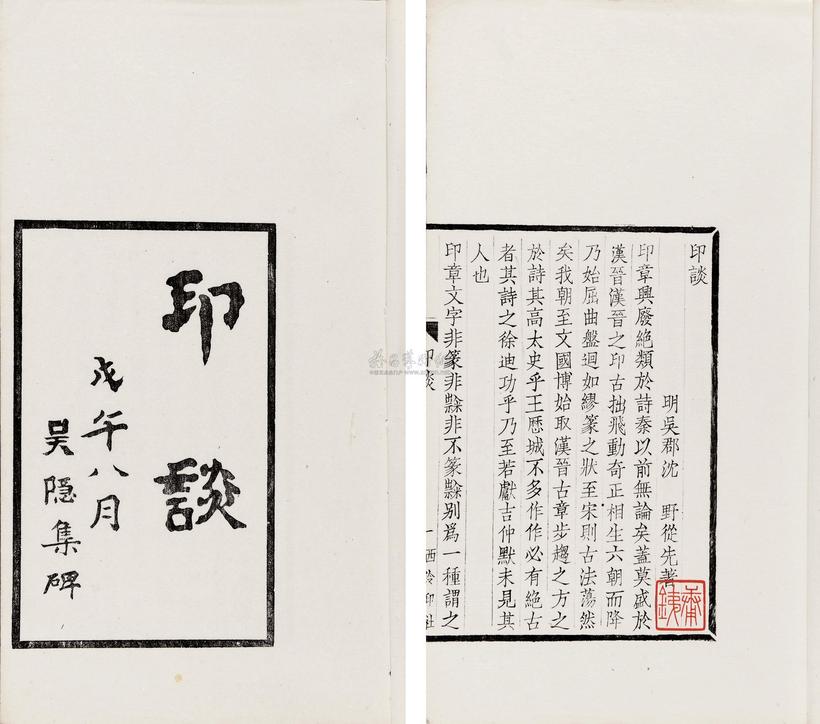 印談
戊午八月
吴隐集碑
印談
明吳郡沈　野從先著
印章興廢絕類於詩秦以前無論矣蓋莫盛於
漢晉漢晉之印古拙飛動奇正相生六朝而降
乃始屈曲盤迴如繆篆之狀至宋則古法蕩然
矣我朝至文國博始取漢晉古章步趨之方之
於詩其高太史乎王歷城不多作作必有絕古
者其詩之徐迪功乎乃至若獻吉仲默未見其
人也
印章文字非篆非隸非不篆隸別爲一種謂之
印談
一
西泠印社